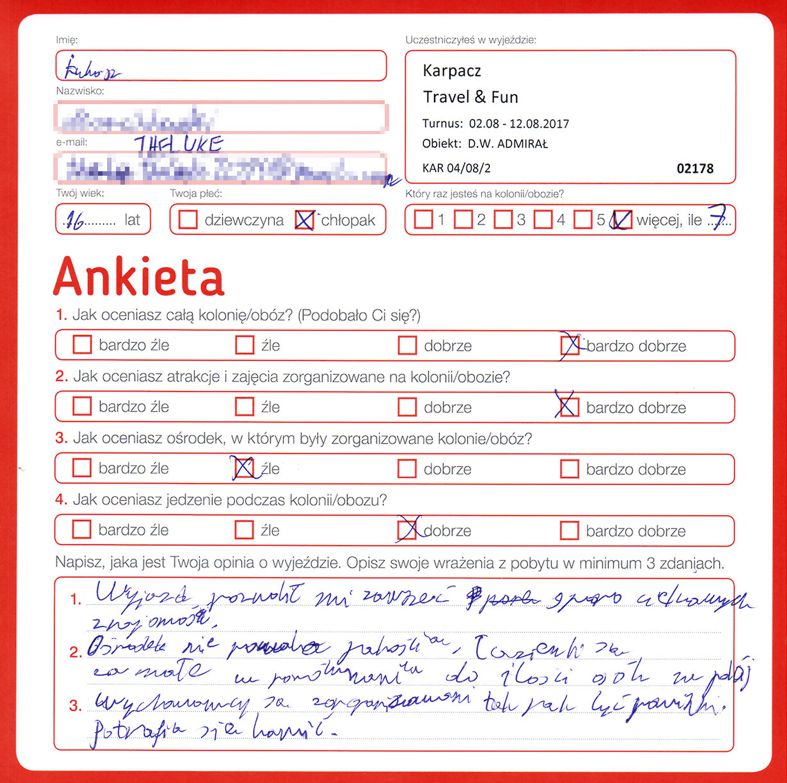 Imię:
Łukasz
Nazwisko:
e-mail:
THELUKE
Twój wiek:
16 lat
Twoja płeć:
dziewczyna chłopak
Uczestniczyłeś w wyjeździe:
Karpacz
Travel & Fun
Turnus: 02.08 - 12.08.2017
Obiekt: D.W. ADMIRAŁ
KAR 04/08/2 02178
Który raz jesteś na kolonii/obozie?
1 2 3 4 5 więcej, ile 7
Ankieta
1. Jak oceniasz całą kolonię/obóz? (Podobało Ci się?)
bardzo źle źle dobrze bardzo dobrze
2. Jak oceniasz atrakcje i zajęcia zorganizowane na kolonii/obozie?
bardzo źle źle dobrze bardzo dobrze
3. Jak oceniasz ośrodek, w którym były zorganizowane kolonie/obóz?
bardzo źle źle dobrze bardzo dobrze
4. Jak oceniasz jedzenie podczas kolonii/obozu?
bardzo źle źle dobrze bardzo dobrze
Napisz, jaka jest Twoja opinia o wyjeździe. Opisz swoje wrażenia z pobytu w minimum 3 zdaniach.
1. Wyjazd pozwolił mi zawrzeć sporo ciekawych
znajomości.
2. Ośrodek nie jakością. Łazienki są
za małe w porównaniu do ilości osób na pokój
3. Wychowawcy są zorganizowani tak jak być powinni.
Potrafią się bawić.